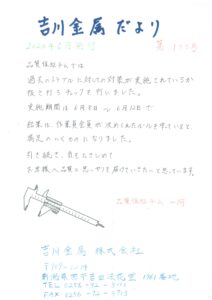 吉川金属だより
2020年6月発行
第 155号
品質保証チームでは
過去のトラブルに対しての対策が実施されているか
抜き打ちチェックを行いました。
実施期間は 6月8日 ～ 6月12日で
結果は、作業員全員が 決められたルールを守っていると
満足のいくものになりました。
引き続き、良いものづくり
お客様へ品質と思いやりを届けていきたいと思っています。
品質保証チーム 一同
吉川金属 株式会社
新潟県燕市吉田法花堂 1961番地
TEL 0256-92-3195
FAX 0256-92-5713